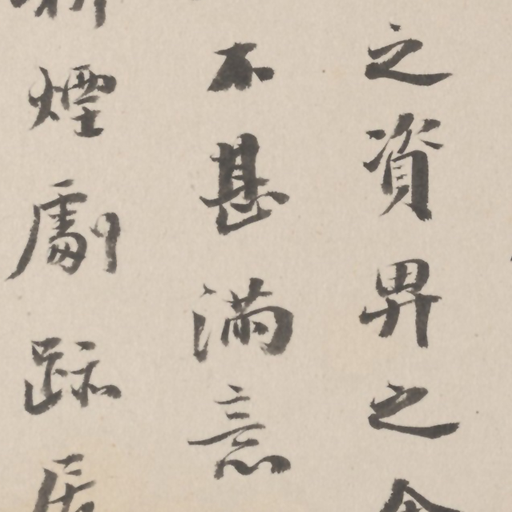 之資畀之
不甚滿意
煙劚跡居